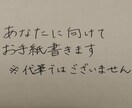 あなたに向けて
お手紙書きます
※代筆ではございません